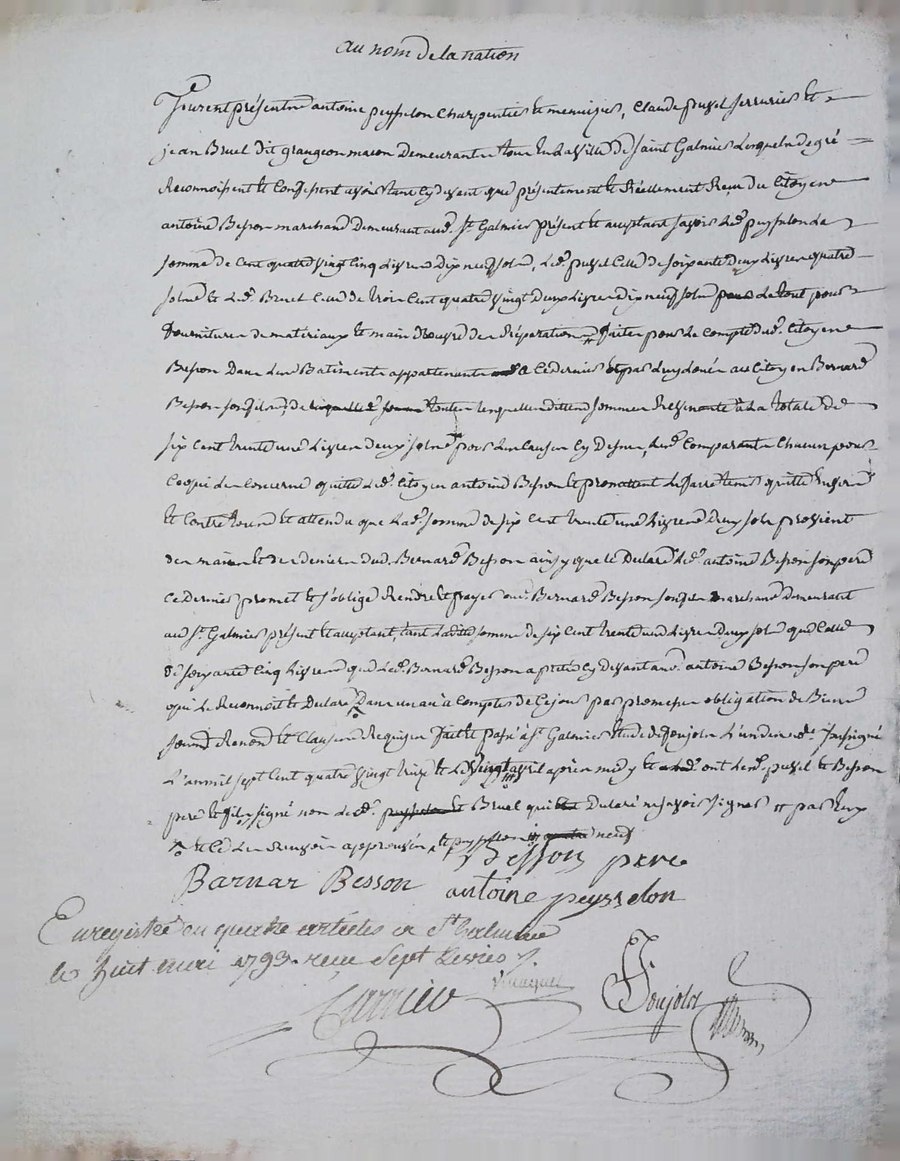 au nom de la nation
Furent présents antoine peysselon Charpentier et menuizier, Claude pupel serrurier et
jean Bruel dit grangeon macon Demeurants tous en la ville de Saint Galmier Lesquels de gré
Reconnoissent et Confessent avoir tant cy devant que présentement et Réellement Reçu du Citoyen
antoine Besson marchand Demeurant aud. St Galmier présent et acceptant savoir Led. peysselon La
somme de Cent quatre vingt Cinq Livres Dix neuf sols, Led. pupel Celle de soixante deux Livres quatre
sols et Led. Bruel Celle de trois Cent quatre vingt deux Livres dix neuf sols Le tout pour
fournitures de matériaux et main d'œuvre des Réparations faites pour Le Compte dud. Citoyen
Besson Dans des Batiments appartenants a Ce dernier et par Luy Loués au Citoyen Bernard
Besson son fils, toutes lesquelles dittes sommes Revenants à La totale de
six Cent trente une Livres deux sols pour Les Causes Cy dessus, Lesd. Comparants Chacun pour
Ce qui Les Concerne quitte Led. Citoyen antoine Besson et promettent Le faire tenir quitte Envers
et Contre tous et attendu que Lad. somme de six Cent trente une Livres deux sols provient
des mains et des deniers dud. Bernard Besson ainsy que le Déclare Led. antoine Besson son père
Ce Dernier promet et s'oblige Rendre et payer aud. Bernard Besson son fils marchand Demeurant
aud St Galmier présent et acceptant, tant Laditte somme de six Cent trente une Livres Deux sols que Celle
de soixante Cinq Livres que Led. Bernard Besson a prêtée Cy devant aud. antoine Besson son père
qui Le Reconnoit et Déclare Dans un an à Compter de Ce jour par promesse obligation de Biens
soums Renons et Clauses Requises fait et passé à St Galmier Etude de Poujols L'un des no. soussigné
L'an mil sept Cent quatre vingt treize et Le vingt avril après midy et ont Lesd. pupel et Besson
père et fils signé non Led. Bruel qui Déclaré ne savoir signer par Eux
Besson pere
Barnar Besson antoine peysselon
Enregistré en quatre articles a St Galmier
le huit mai 1793. reçu Sept Livres
Poujols